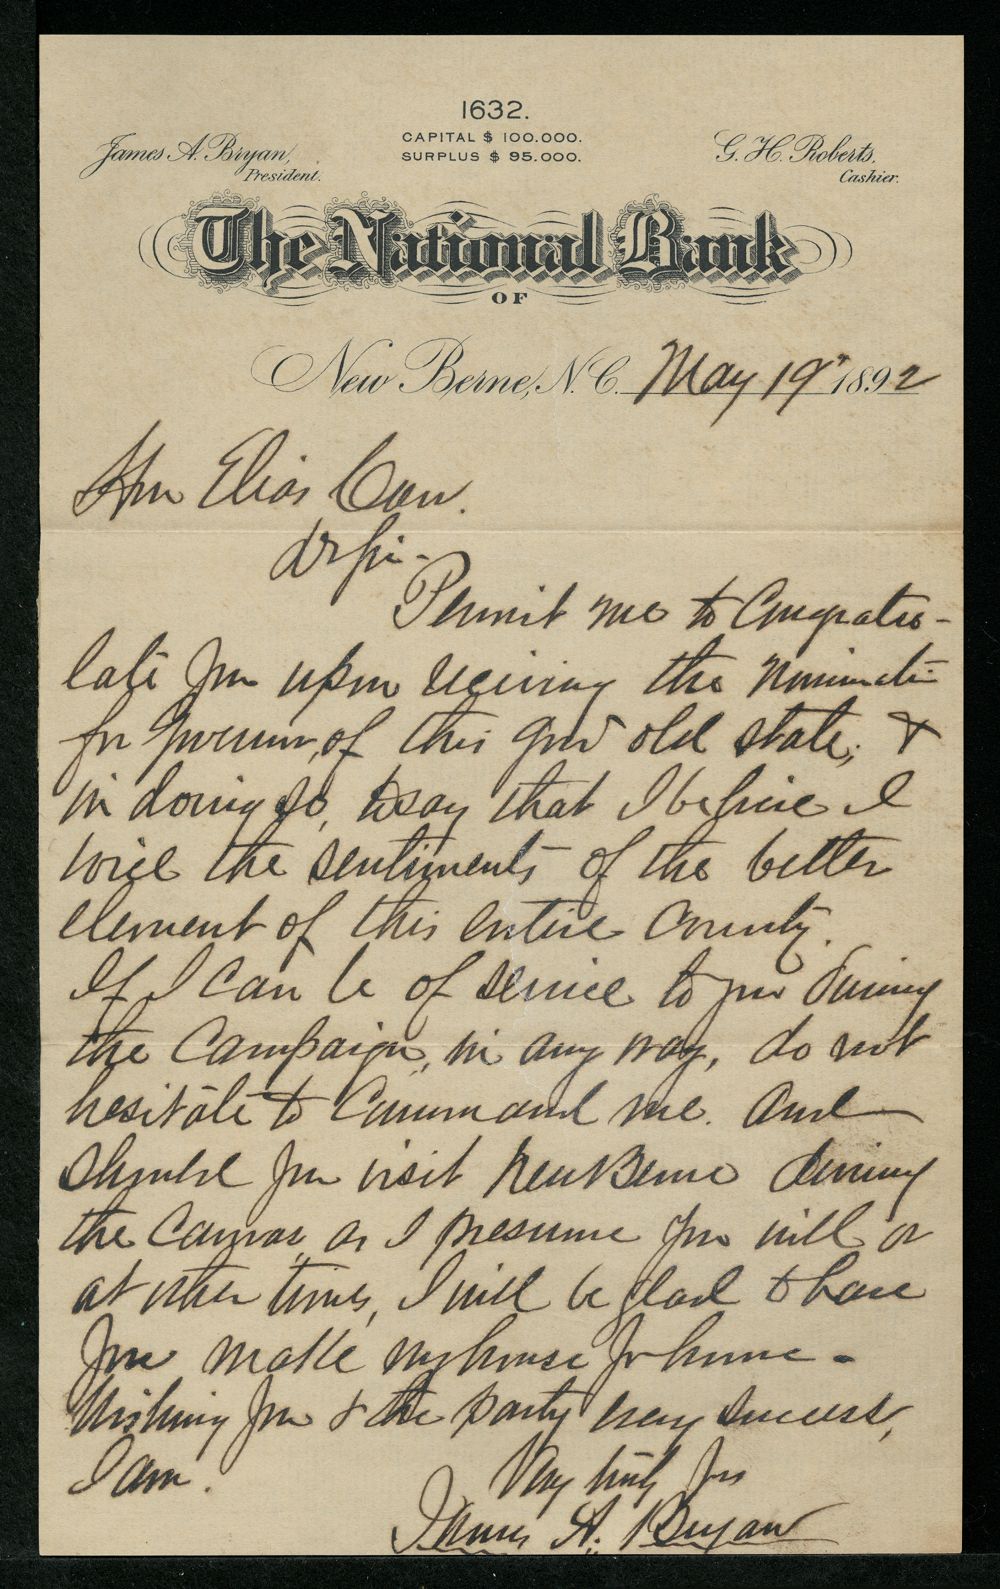 1632.
CAPITAL $ 100.000.
SURPLUS $ 95.000.
James A. Bryan,
President.
G. H. Roberts,
Cashier.
The National Bank
OF
New Berne, N. C. May 19" 1892
Hon Elias Carr.
Dr Sir -
Permit me to Congratu-
late you upon receiving the nominatin
for Governor, of this good old state, &
in doing so, to say that I believe I
voice the sentiments of the better
element of this entire County.
If I can be of service to you during
the Campaign, in any way, do not
hesitate to Command me. And
should you visit New Berne during
the Canvas, as I presume you will or
at other times, I will be glad to have
you make my house yr home -
Wishing you & the party every success,
I am.
Very truly yrs
James A. Bryan